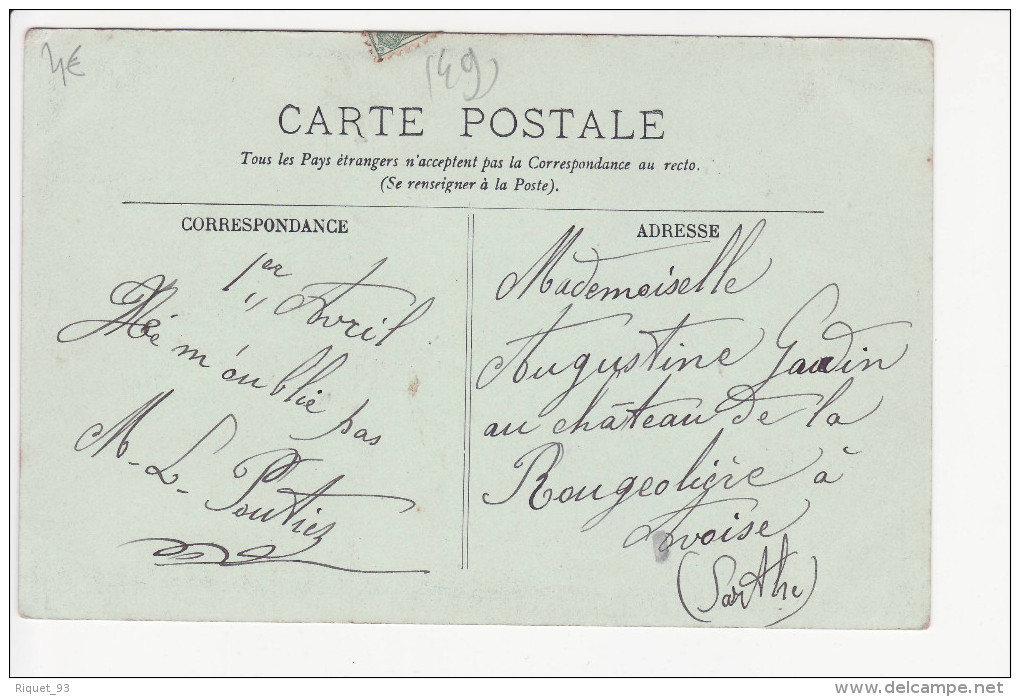 4€
(49)
CARTE POSTALE
Tous les Pays étrangers n'acceptent pas la Correspondance au recto.
(Se renseigner à la Poste).
CORRESPONDANCE
1er Avril
m'oublie pas
M. L.
ADRESSE
Mademoiselle
Augustine Gaudin
au château de la
Rougeolière à
Avoise
(Sarthe)
Riquet_93
www.delcampe.net